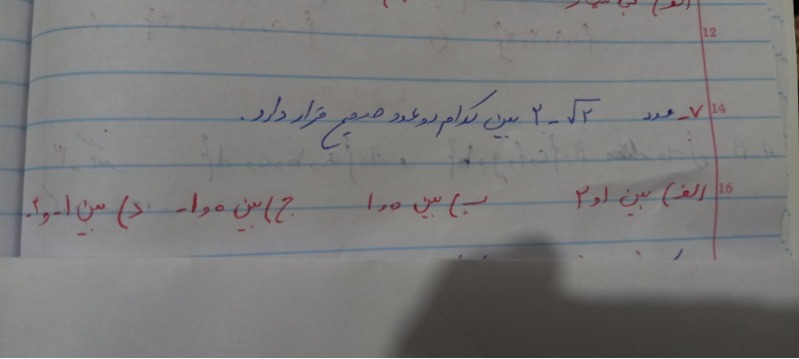 12
14
۷ـ عدد √۲ ـ ۲ بین کدام دو عدد صحیح قرار دارد.
16
الف) بین ۱و۲ ب) بین ۰و۱ ج) بین ۰و۱- د) بین ۱-و۲-